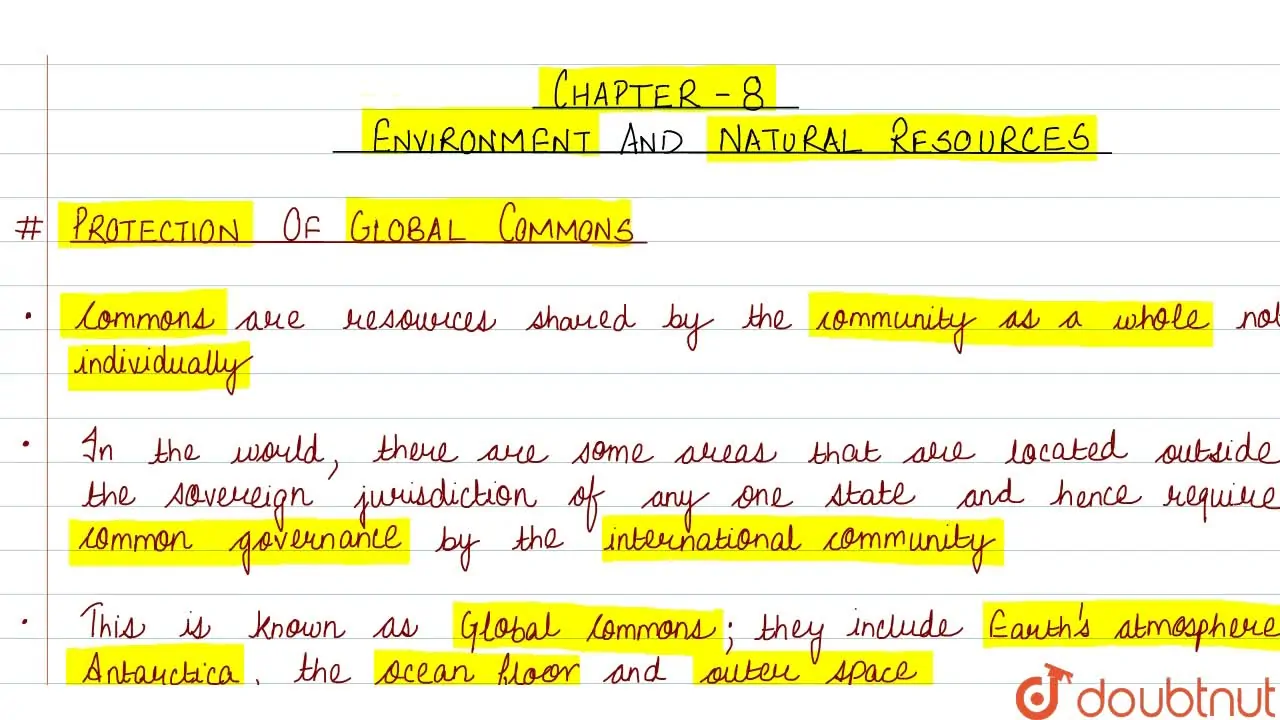 CHAPTER - 8
ENVIRONMENT AND NATURAL RESOURCES
# PROTECTION OF GLOBAL COMMONS
• Commons are resources shared by the community as a whole not
individually
• In the world, there are some areas that are located outside
the sovereign jurisdiction of any one state and hence require
common governance by the international community
• This is known as Global Commons; they include Earth's atmosphere
Antarctica, the ocean floor and outer space
doubtnut